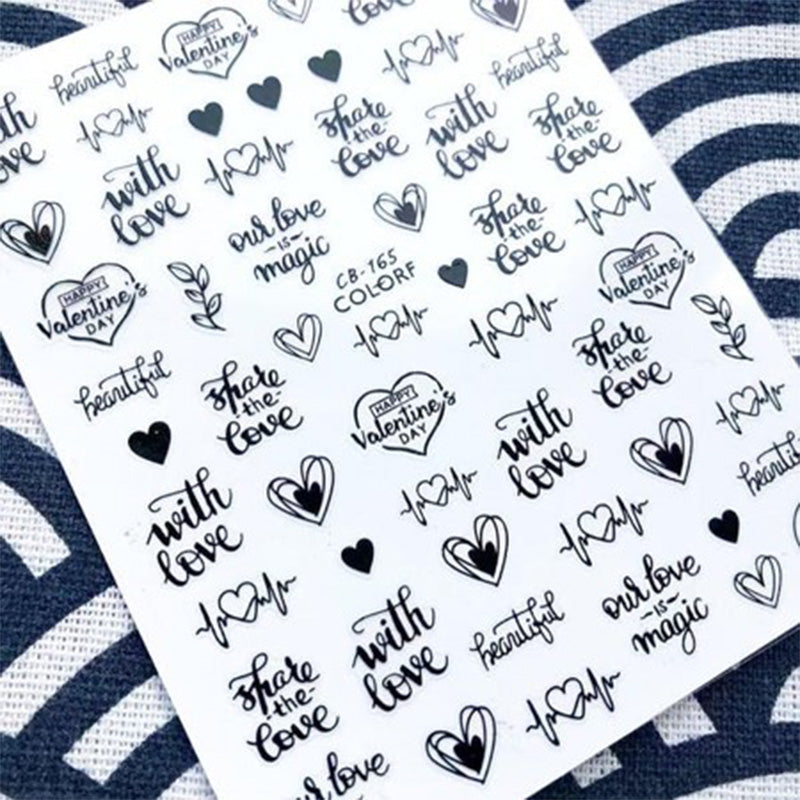 HAPPY
Valentine's
DAY
love
beautiful
with
love
beautiful
with
love
share
-the-
love
with
love
share
-the-
love
our love
-is-
magic
share
-the-
love
CB-165
COLORF
HAPPY
Valentine's
DAY
HAPPY
Valentine's
DAY
beautiful
share
-the-
love
HAPPY
Valentine's
DAY
share
-the-
love
with
love
with
love
beautiful
with
love
beautiful
our love
-is-
magic
share
-the-
love
our love